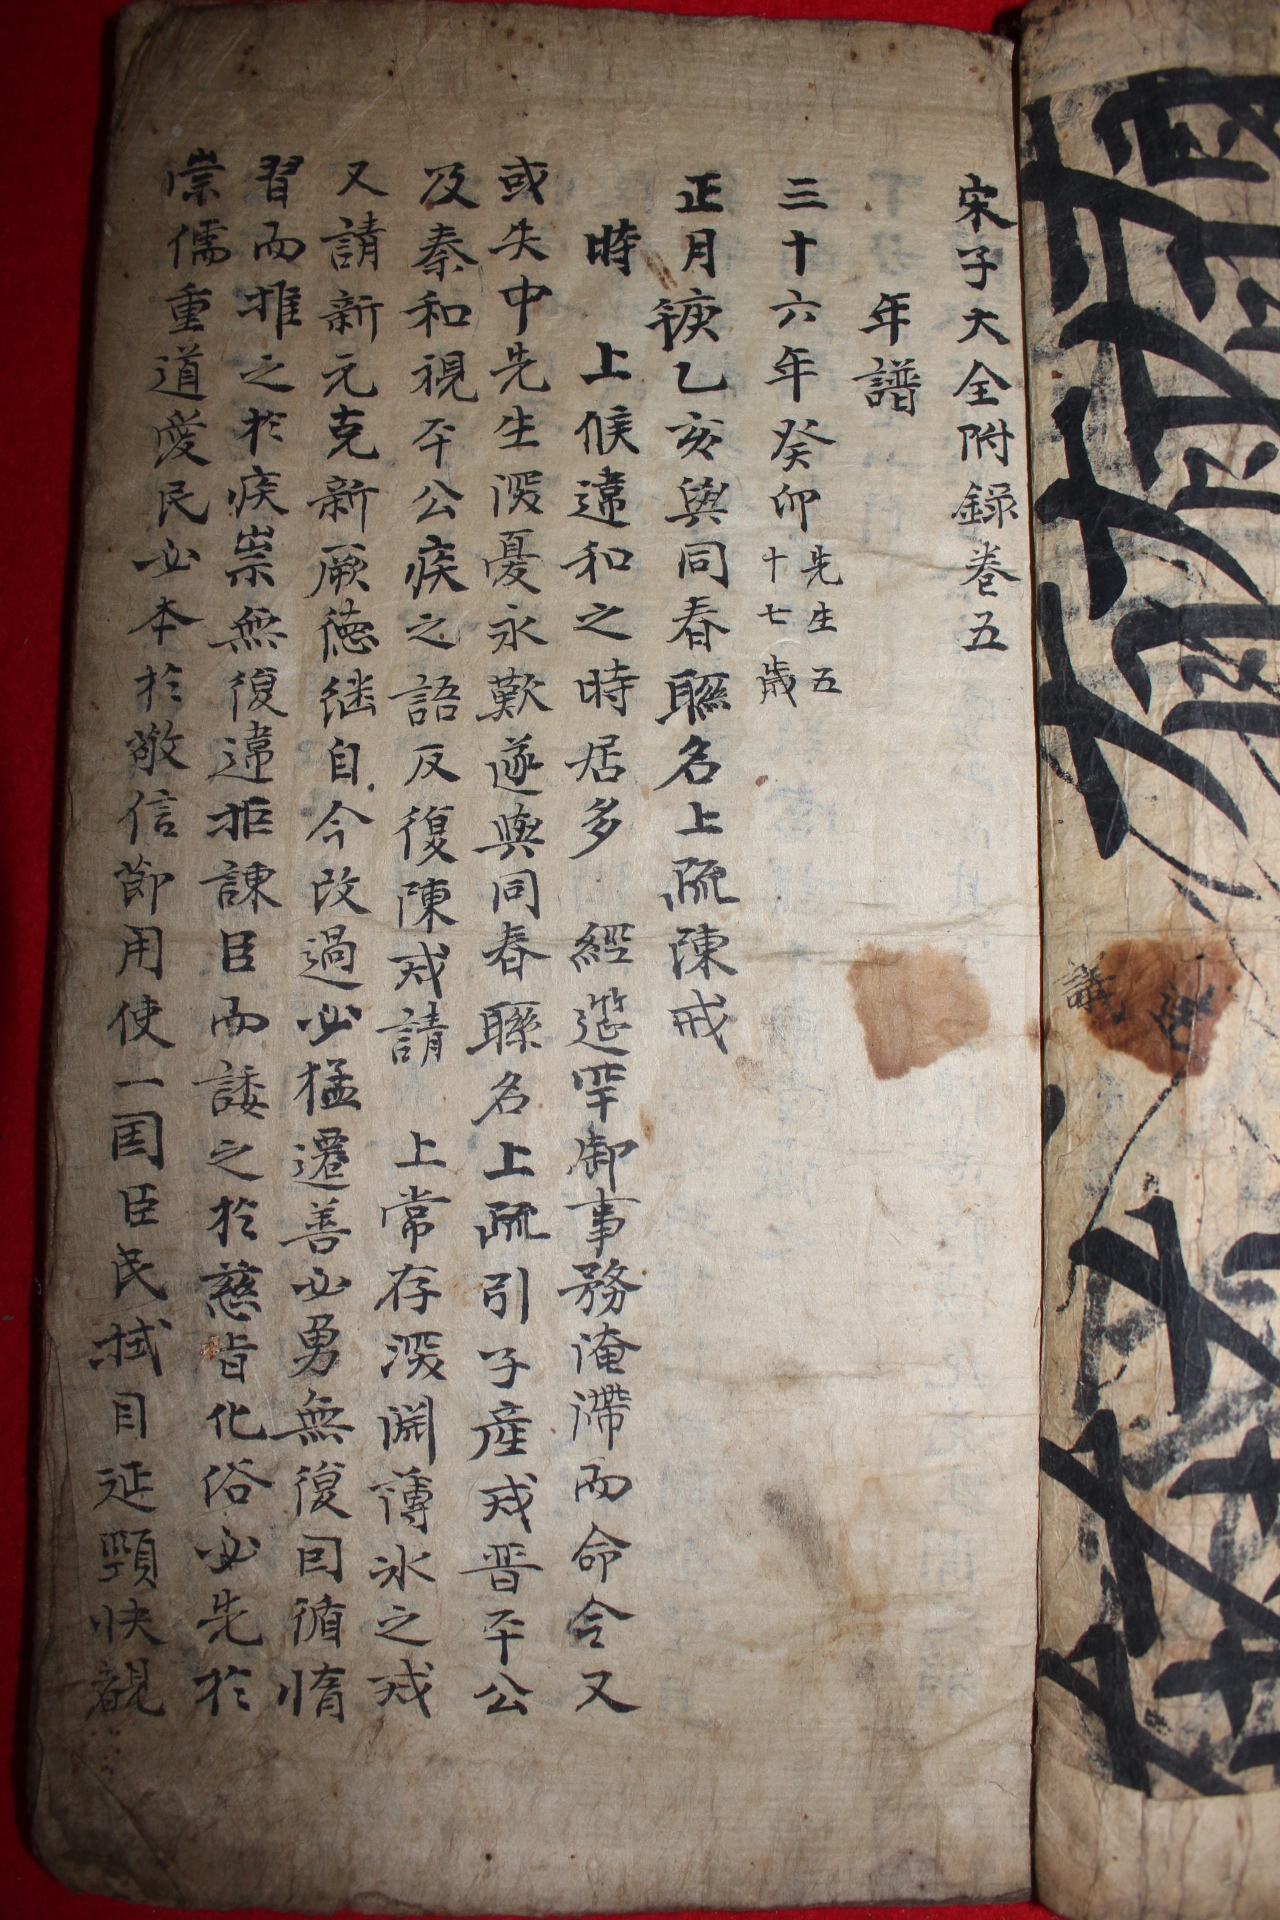 宋子大全附錄卷五
年譜
三十六年癸卯先生五十七歲
正月乙亥與同春聯名上疏陳戒
時 上候違和之時居多 經筵罕御事務淹滯而命令又
或失中先生深憂永歎遂與同春聯名上疏引子產戒晋平公
及秦和視平公疾之語反復陳戒請 上常存深淵薄氷之戒
又請新元克新厥德継自今改過必猛遷善必勇無復因循惰
習而推之於疾祟無復違拒諫臣而諉之於慈旨化俗必先於
崇儒重道愛民必本於敬信節用使一国臣民拭目延頸快覩